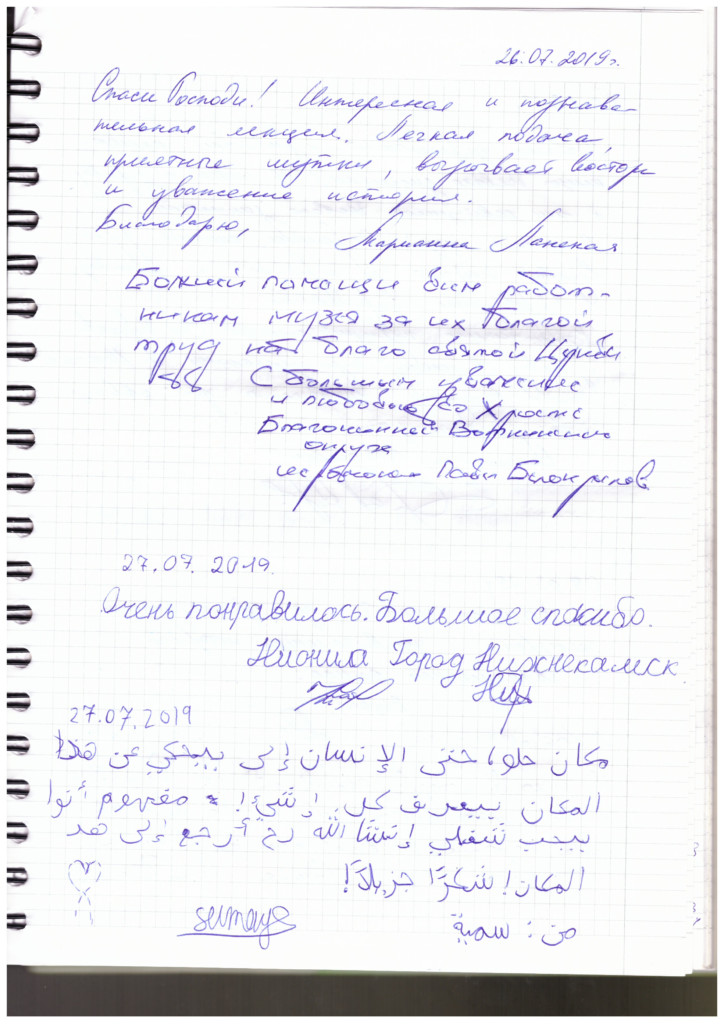 26.07.2019г.
Спаси Господи! Интересная и познава-
тельная лекция. Легкая подача,
приятные шутки, вызывает восторг
и уважение история.
Благодарю, Марианна Ланская
Божией помощи вам работ-
никам музея за их благой
труд на благо святой Церкви
С большим уважение
и любовью во Христе
Благочинный
округа
Павел
27.07.2019.
Очень понравилось. Большое спасибо.
Нионила Город Нижнекамск.
27.07.2019
مكان حلو، حتى الإنسان إلى بيحكي عن هذا
المكان بيعرف كل إشيئ! مفهوم أنوا
بيجب شغلي إنشا الله رح أرجع إلى هد
المكان! شكرًا جزيلاً!
من: سمية
sumaya